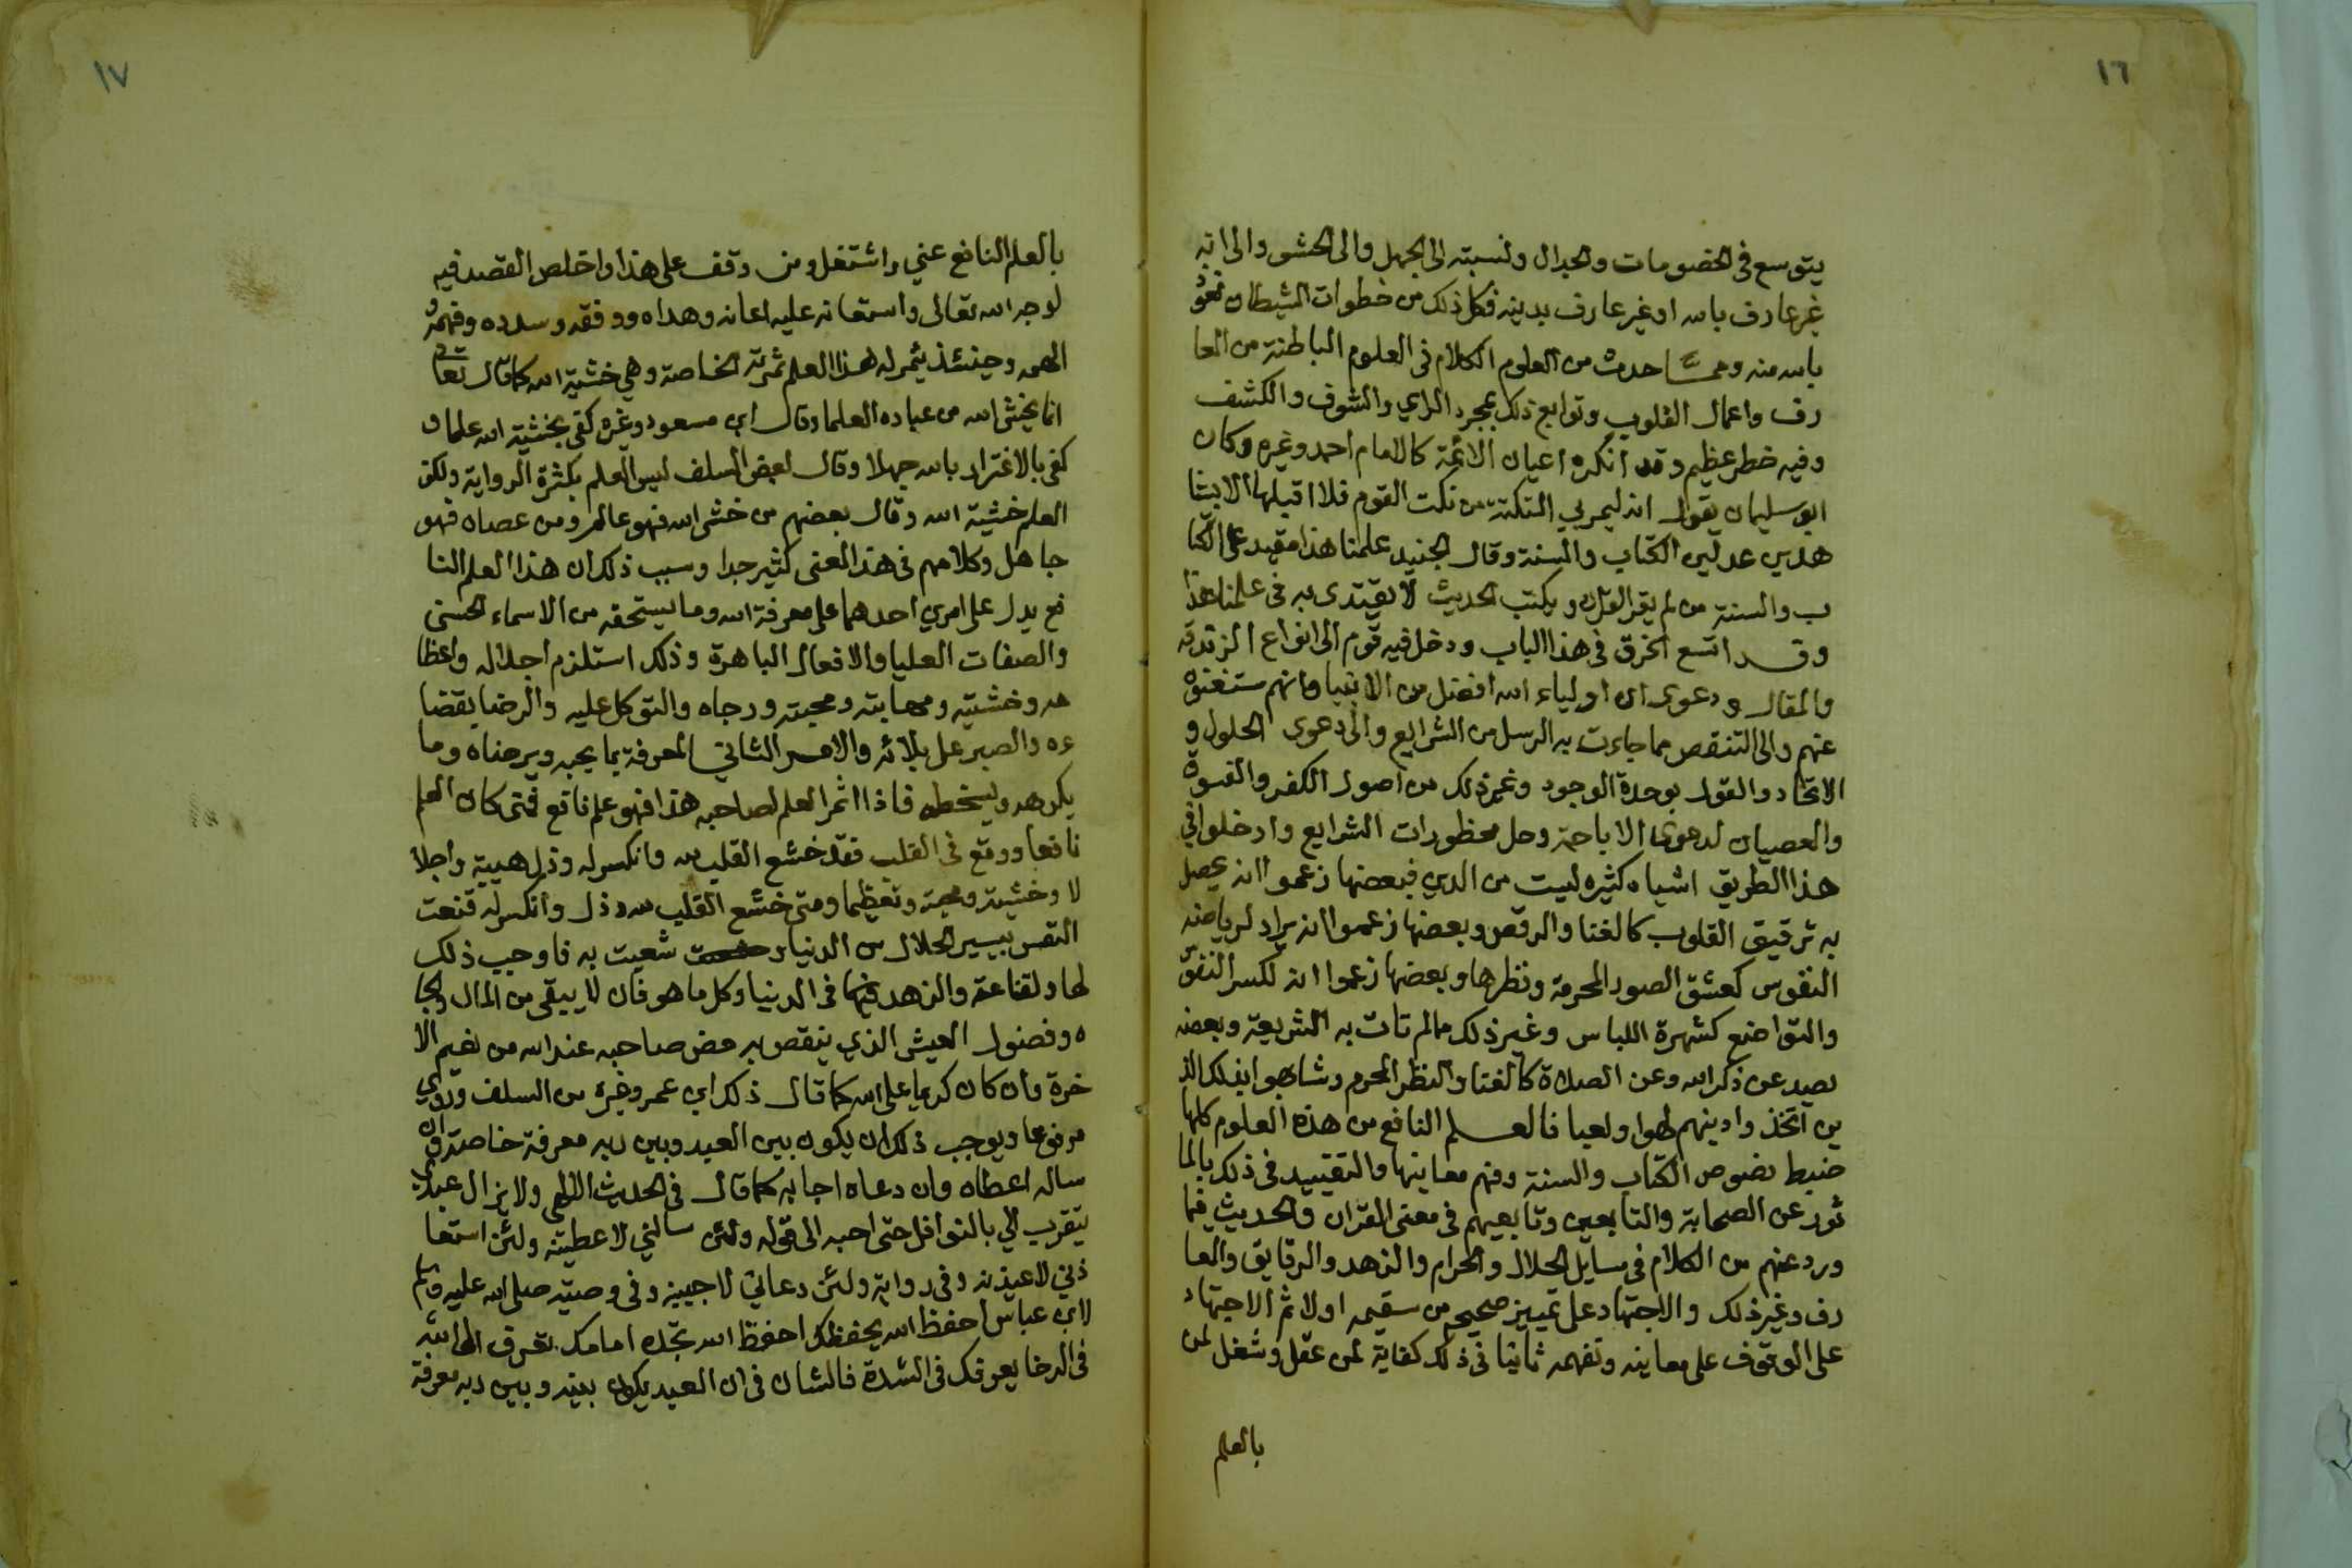 ١٦
يتوسع في الخصومات والجدال ونسبته الى الجهل والى الحشو والى انه
غير عارف بالله او غير عارف بدينه فكل ذلك من خطوات الشيطان نعوذ
بالله منه ومما احدث من العلوم الكلام في العلوم الباطنة من المعا
رف واعمال القلوب وتوابع ذلك بمجرد الراي والذوق والكشف
وفيه خطر عظيم وقد انكره اعيان الائمة كالامام احمد وغيره وكان
ابو سليمان يقول انه ليمر بي النكتة من نكت القوم فلا اقبلها الا بشا
هدين عدلين الكتاب والسنة وقال الجنيد علمنا هذا مقيد على الكتا
ب والسنة من لم يقرا القران ويكتب الحديث لا يقتدى به في علمنا هذا
وقد اتسع الخرق في هذا الباب ودخل فيه قوم الى انواع الزندقه
والمقال ودعوى ان اولياء الله افضل من الانبيا وانهم مستغنون
عنهم والى التنقص مما جاءت به الرسل من الشرايع والى دعوى الحلول و
الاتحاد والقول بوحدة الوجود وغير ذلك من اصول الكفر والفسوق
والعصيان لدعوى الاباحة وحل محظورات الشرايع وادخلوا في
هذا الطريق اشياء كثيره ليست من الدين فبعضها زعموا انه يحصل
به ترقيق القلوب كالغنا والرقص وبعضها زعموا انه يراد لرياضه
النفوس كعشق الصور المحرمة ونظرها وبعضها زعموا انه لكسر النفوس
والتواضع كشهرة اللباس وغير ذلك مما لم تات به الشريعة وبعضه
يصد عن ذكر الله وعن الصلاة كالغنا والنظر المحرم وشابهوا بذلك الذ
ين اتخذوا دينهم لهوا ولعبا فالعلم النافع من هذه العلوم كلها
ضبط نصوص الكتاب والسنة وفهم معانيها والتقييد في ذلك بالما
ثور عن الصحابة والتابعين وتابعيهم في معنى القران والحديث فيما
ورد عنهم من الكلام في مسايل الحلال والحرام والزهد والرقايق والمعا
رف وغير ذلك والاجتهاد على تمييز صحيحه من سقيمه اولا ثم الاجتهاد
على الوقوف على معاينه وتفهمه ثانيا في ذلك كفاية لمن عقل وشغل لمن
بالعلم
١٧
بالعلم النافع عني واشتغل ومن وقف على هذا واخلص القصد فيه
لوجه الله تعالى واستعانه عليه اعانه وهداه ووفقه وسدده وفهمه و
الهمه وحينئذ يثمر له هذا العلم ثمرته الخاصة وهي خشية الله كما قال تعالى
انما يخشى الله من عباده العلما وقال ابن مسعود وغيره كفى بخشية الله علما و
كفى بالاغترار بالله جهلا وقال بعض السلف ليس العلم بكثرة الرواية ولكن
العلم خشية الله وقال بعضهم من خشى الله فهو عالم ومن عصاه فهو
جاهل وكلامهم في هذا المعنى كثير جدا وسبب ذلك ان هذا العلم النا
فع يدل على امرين احدهما على معرفة الله وما يستحقه من الاسماء الحسنى
والصفات العليا والافعال الباهرة وذلك استلزم اجلاله واعظا
مه وخشيته ومهابته ومحبته ورجاه والتوكل عليه والرضا بقضا
ءه والصبر على بلائه والامر الثاني المعرفة بما يحبه ويرضاه وما
يكرهه ويسخطه فاذا اثمر العلم لصاحبه هذا فهو علم نافع فمتى كان العلم
نافعا ووقع في القلب فقد خشع القلب لله وانكسر له وذل هيبة واجلا
لا وخشية ومحبة وتعظيما ومتى خشع القلب لله وذل وانكسر له قنعت
النفس بيسير الحلال من الدنيا و شبعت به فاوجب ذلك
لها القناعة والزهد في الدنيا وكل ما هو فان لا يبقى من المال والجا
ه وفضول العيش الذي ينقص به حض صاحبه عند الله من نعيم الا
خرة وان كان كريما على الله كما قال ذلك ابن عمر وغيره من السلف وروي
مرفوعا ويوجب ذلك ان يكون بين العبد وبين ربه معرفة خاصة وان
ساله اعطاه وان دعاه اجابه كما قال في الحديث الالهي ولا يزال عبدي
يتقرب الي بالنوافل حتى احبه الى قوله ولئن سالني لاعطينه ولئن استعا
ذني لاعيذنه وفي رواية ولئن دعاني لاجيبنه وفي وصيته صلى الله عليه وسلم
لابن عباس احفظ الله يحفظك احفظ الله تجده امامك تعرف الى الله
في الرخا يعرفك في الشدة فالشان في ان العبد يكون بينه وبين ربه معرفة